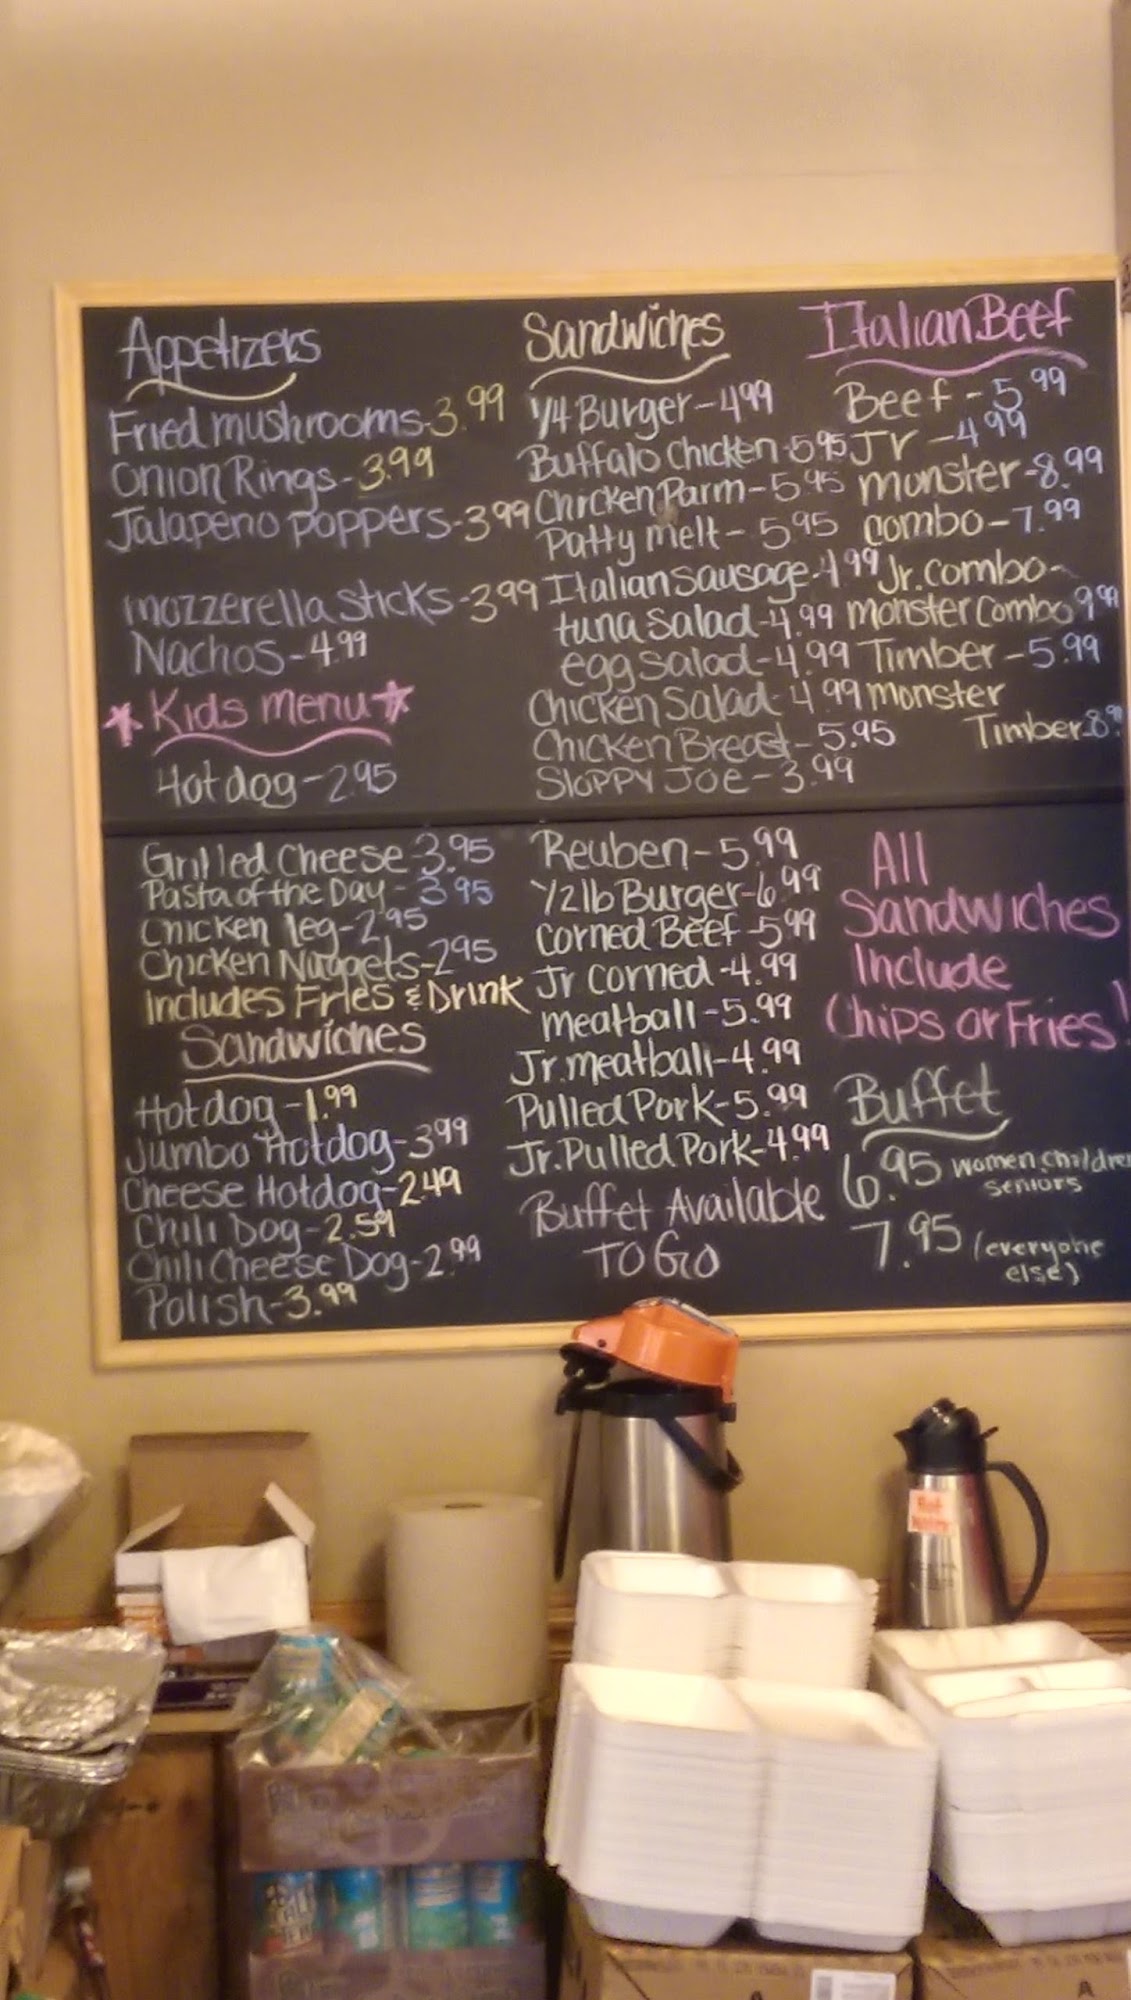 Appetizers
Fried mushrooms-3.99
Onion Rings-3.99
Jalapeno poppers-3.99
mozzerella sticks-3.99
Nachos-4.99
Kids menu
Hot dog-2.95
Grilled Cheese-3.95
Pasta of the Day-3.95
Chicken leg-2.95
Chicken Nuggets-2.95
Includes Fries & Drink
Sandwiches
Hot dog-1.99
Jumbo Hotdog-3.99
Cheese Hotdog-2.49
Chili Dog-2.59
Chili Cheese Dog-2.99
Polish-3.99
Sandwiches
1/4 Burger-4.99
Buffalo Chicken-5.95
Chicken Parm-5.95
Patty melt-5.95
Italian Sausage-4.99
tuna salad-4.99
egg salad-4.99
Chicken Salad-4.99
Chicken Breast-5.95
Sloppy Joe-3.99
Reuben-5.99
1/2 lb Burger-6.99
Corned Beef-5.99
Jr corned-4.99
meatball-5.99
Jr. meatball-4.99
Pulled Pork-5.99
Jr. Pulled Pork-4.99
Buffet Available
TO GO
Italian Beef
Beef-5.99
Jr-4.99
monster-8.99
combo-7.99
Jr. combo-
monster combo 9.99
Timber-5.99
monster
Timber-8.9
All
Sandwiches
Include
Chips or Fries!
Buffet
6.95 women, children
seniors
7.95 (everyone
else)